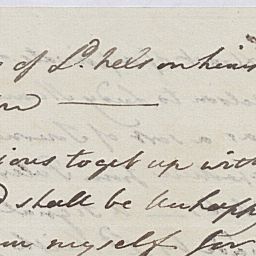 of Ld. Nelson hims
ious to get up with
shall be Unhapp
myself for